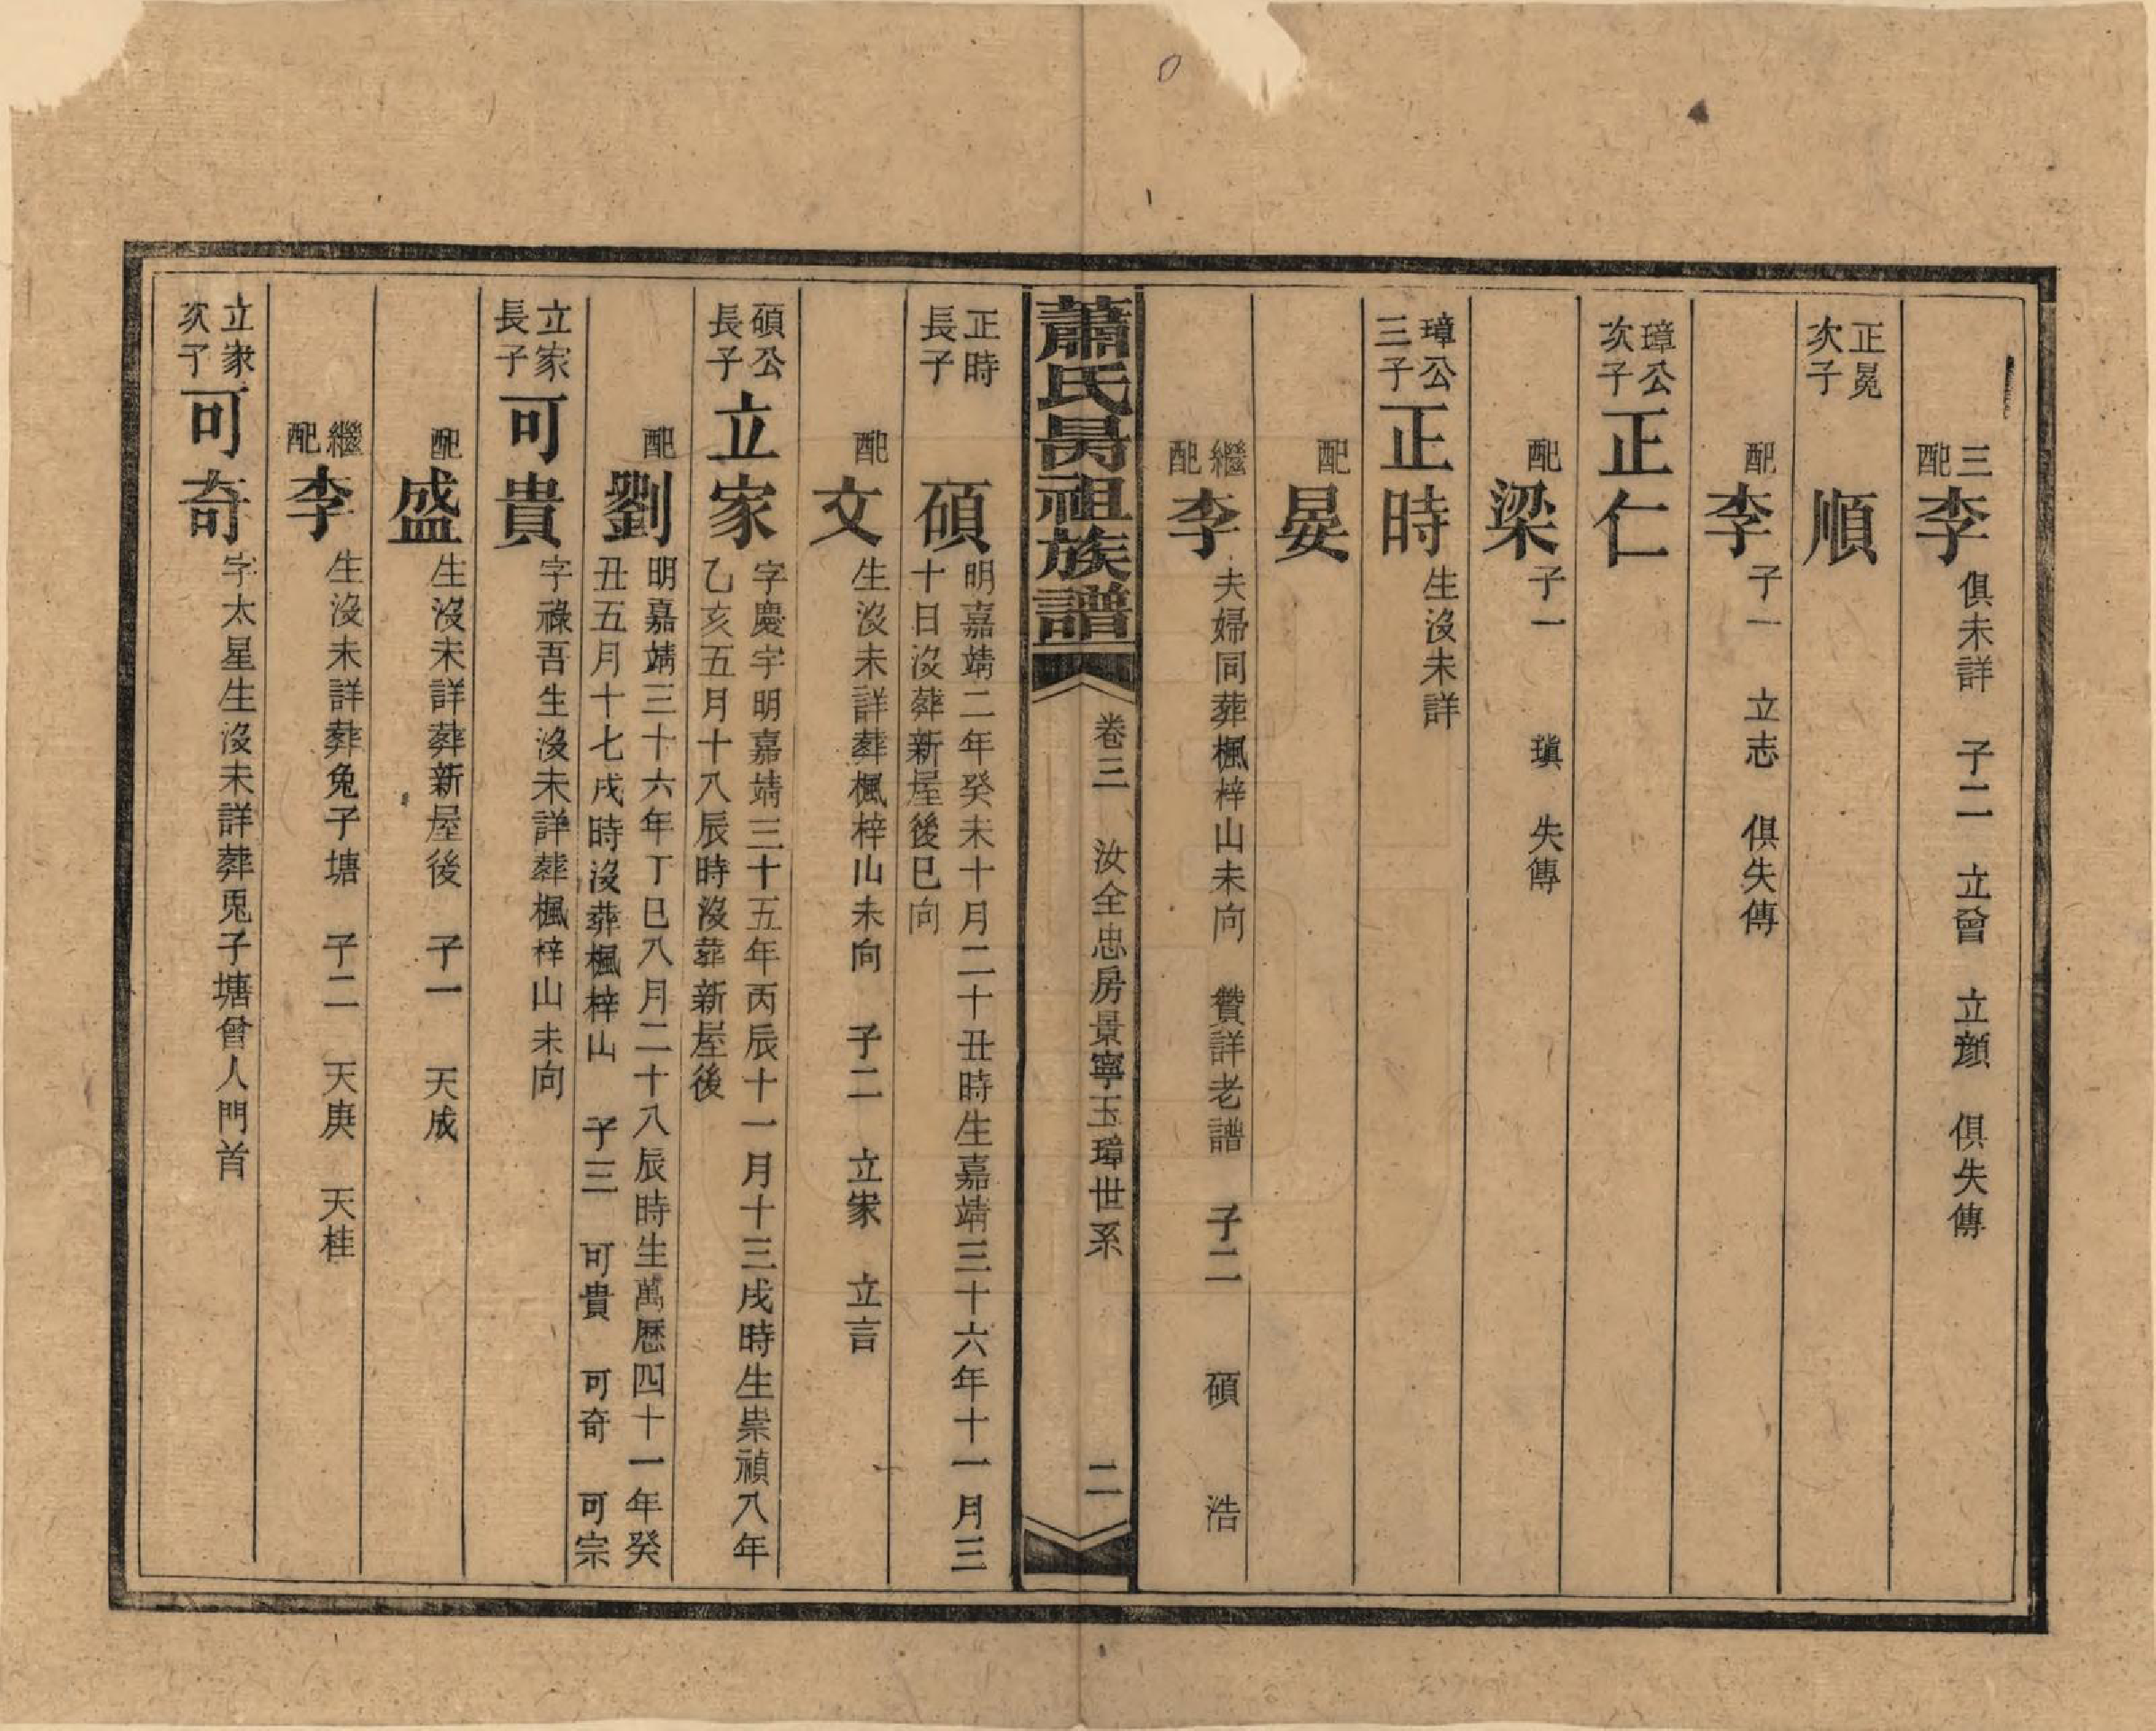 三配 李 俱未詳 子二 立曾 立顏 俱失傳
正冕次子 順
配 李 子一 立志 俱失傳
璋公次子 正仁
配 梁 子一 瑱 失傳
璋公三子 正時 生沒未詳
配 晏
繼配 李 夫婦同葬楓梓山未向 贊詳老譜 子二 碩 浩
蕭氏昺祖族譜 卷三 汝全忠房景寧玉璋世系 二
正時長子 碩 明嘉靖二年癸未十月二十丑時生嘉靖三十六年十一月三十日沒葬新屋後巳向
配 文 生沒未詳葬楓梓山未向 子二 立家 立言
碩公長子 立家 字慶宇明嘉靖三十五年丙辰十一月十三戌時生崇禎八年乙亥五月十八辰時沒葬新屋後
配 劉 明嘉靖三十六年丁巳八月二十八辰時生萬曆四十一年癸丑五月十七戌時沒葬楓梓山 子三 可貴 可奇 可宗
立家長子 可貴 字祿吾生沒未詳葬楓梓山未向
配 盛 生沒未詳葬新屋後 子一 天成
繼配 李 生沒未詳葬兔子塘 子二 天庚 天桂
立家次子 可奇 字太星生沒未詳葬兎子塘曾人門首